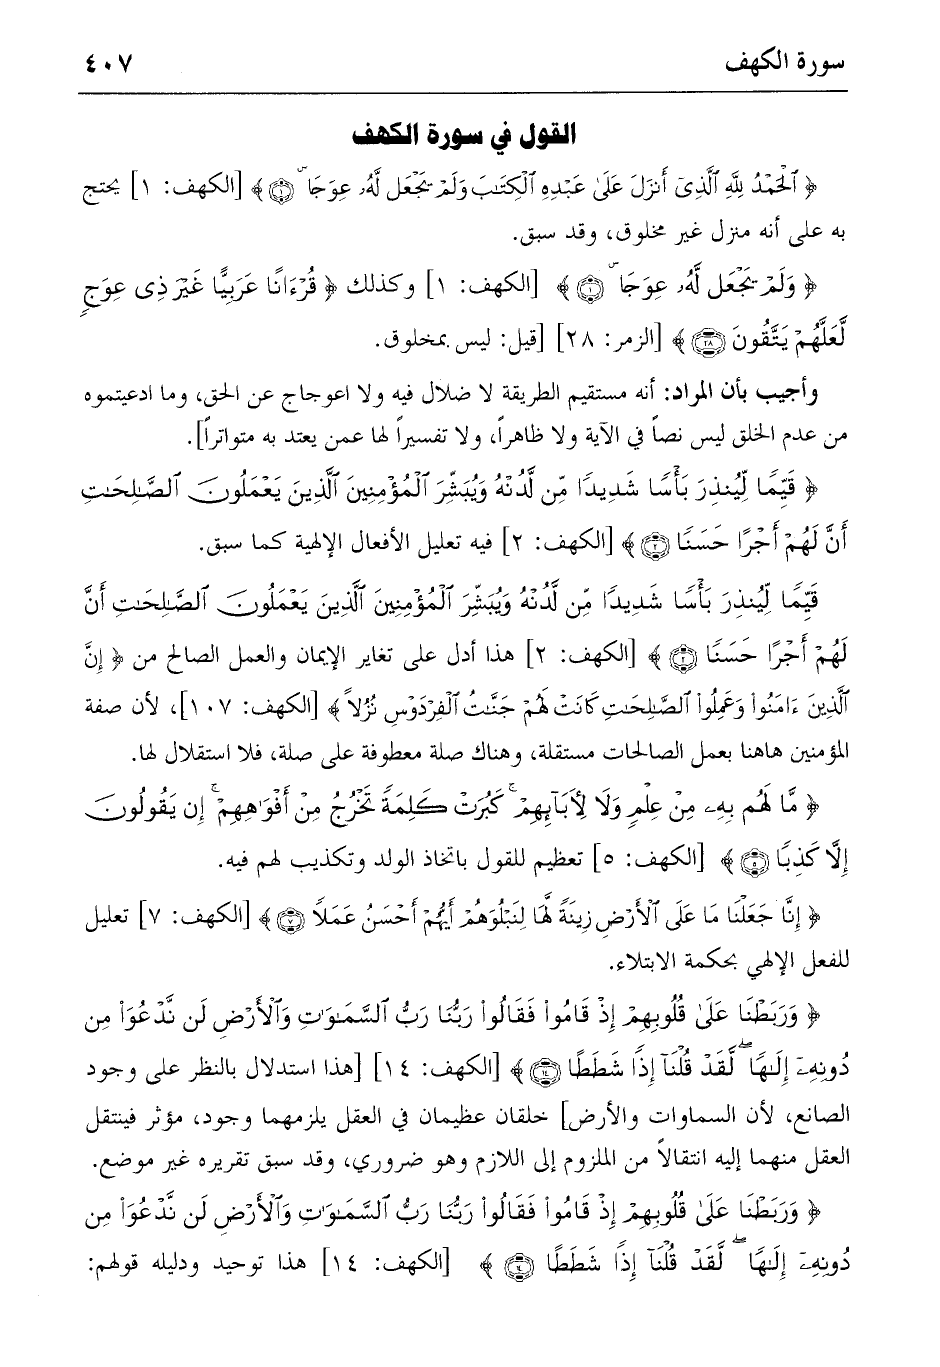 سورة الكهف ٤٠٧
القول في سورة الكهف
﴿ ٱلْحَمْدُ لِلَّهِ ٱلَّذِىٓ أَنزَلَ عَلَىٰ عَبْدِهِ ٱلْكِتَـٰبَ وَلَمْ يَجْعَل لَّهُۥ عِوَجَا ۜ ١ ﴾ [الكهف: ١] يحتج
به على أنه منزل غير مخلوق، وقد سبق.
﴿ وَلَمْ يَجْعَل لَّهُۥ عِوَجَا ۜ ١ ﴾ [الكهف: ١] وكذلك ﴿ قُرْءَانًا عَرَبِيًّا غَيْرَ ذِى عِوَجٍ
لَّعَلَّهُمْ يَتَّقُونَ ٢٨ ﴾ [الزمر: ٢٨] [قيل: ليس بمخلوق.
وأجيب بأن المراد: أنه مستقيم الطريقة لا ضلال فيه ولا اعوجاج عن الحق، وما ادعيتموه
من عدم الخلق ليس نصاً في الآية ولا ظاهراً، ولا تفسيراً لها عمن يعتد به متواتراً].
﴿ قَيِّمًا لِّيُنذِرَ بَأْسًا شَدِيدًا مِّن لَّدُنْهُ وَيُبَشِّرَ ٱلْمُؤْمِنِينَ ٱلَّذِينَ يَعْمَلُونَ ٱلصَّـٰلِحَـٰتِ
أَنَّ لَهُمْ أَجْرًا حَسَنًا ٢ ﴾ [الكهف: ٢] فيه تعليل الأفعال الإلهية كما سبق.
قَيِّمًا لِّيُنذِرَ بَأْسًا شَدِيدًا مِّن لَّدُنْهُ وَيُبَشِّرَ ٱلْمُؤْمِنِينَ ٱلَّذِينَ يَعْمَلُونَ ٱلصَّـٰلِحَـٰتِ أَنَّ
لَهُمْ أَجْرًا حَسَنًا ٢ ﴾ [الكهف: ٢] هذا أدل على تغاير الإيمان والعمل الصالح من ﴿ إِنَّ
ٱلَّذِينَ ءَامَنُوا۟ وَعَمِلُوا۟ ٱلصَّـٰلِحَـٰتِ كَانَتْ لَهُمْ جَنَّـٰتُ ٱلْفِرْدَوْسِ نُزُلاً ﴾ [الكهف: ١٠٧]، لأن صفة
المؤمنين هاهنا بعمل الصالحات مستقلة، وهناك صلة معطوفة على صلة، فلا استقلال لها.
﴿ مَّا لَهُم بِهِۦ مِنْ عِلْمٍ وَلَا لِـَٔابَآئِهِمْ ۚ كَبُرَتْ كَلِمَةً تَخْرُجُ مِنْ أَفْوَٰهِهِمْ ۚ إِن يَقُولُونَ
إِلَّا كَذِبًا ٥ ﴾ [الكهف: ٥] تعظيم للقول باتخاذ الولد وتكذيب لهم فيه.
﴿ إِنَّا جَعَلْنَا مَا عَلَى ٱلْأَرْضِ زِينَةً لَّهَا لِنَبْلُوَهُمْ أَيُّهُمْ أَحْسَنُ عَمَلًا ٧ ﴾ [الكهف: ٧] تعليل
للفعل الإلهي بحكمة الابتلاء.
﴿ وَرَبَطْنَا عَلَىٰ قُلُوبِهِمْ إِذْ قَامُوا۟ فَقَالُوا۟ رَبُّنَا رَبُّ ٱلسَّمَـٰوَٰتِ وَٱلْأَرْضِ لَن نَّدْعُوَا۟ مِن
دُونِهِۦٓ إِلَـٰهًا ۖ لَّقَدْ قُلْنَآ إِذًا شَطَطًا ١٤ ﴾ [الكهف: ١٤] [هذا استدلال بالنظر على وجود
الصانع، لأن السماوات والأرض] خلقان عظيمان في العقل يلزمهما وجود، مؤثر فينتقل
العقل منهما إليه انتقالاً من الملزوم إلى اللازم وهو ضروري، وقد سبق تقريره غير موضع.
﴿ وَرَبَطْنَا عَلَىٰ قُلُوبِهِمْ إِذْ قَامُوا۟ فَقَالُوا۟ رَبُّنَا رَبُّ ٱلسَّمَـٰوَٰتِ وَٱلْأَرْضِ لَن نَّدْعُوَا۟ مِن
دُونِهِۦٓ إِلَـٰهًا ۖ لَّقَدْ قُلْنَآ إِذًا شَطَطًا ١٤ ﴾ [الكهف: ١٤] هذا توحيد ودليله قولهم: